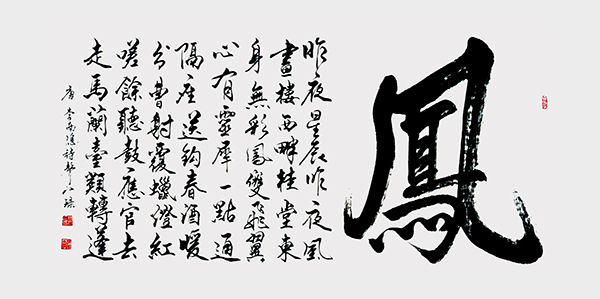 鳳
昨夜星辰昨夜風
畫樓西畔桂堂東
身無彩鳳雙飛翼
心有靈犀一點通
隔座送鈎春酒暖
分曹射覆蠟燈紅
嗟餘聽鼓應官去
走馬蘭臺類轉蓬
唐李商隱詩